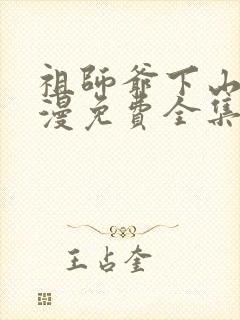 祖師爺下山
漫免費全集
王占奎